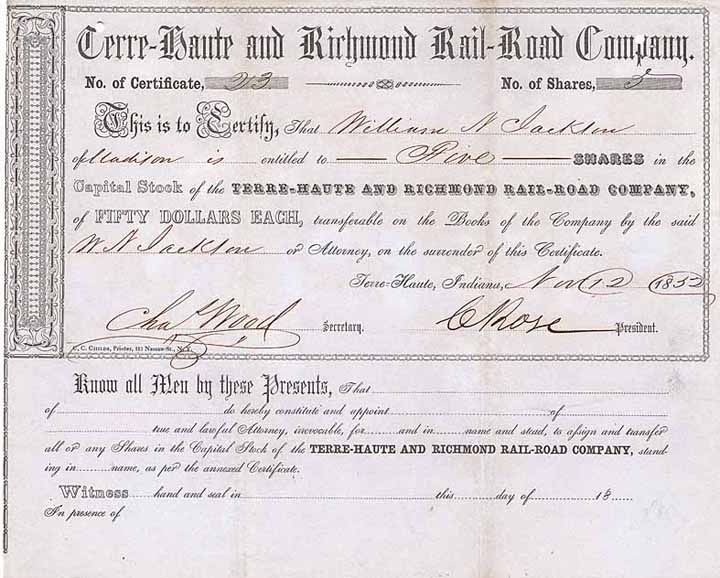 Terre-Haute and Richmond Rail-Road Company.
No. of Certificate, 23 No. of Shares, 5
This is to Certify, That William N Jackson
of Madison is entitled to Five SHARES in the
Capital Stock of the TERRE-HAUTE AND RICHMOND RAIL-ROAD COMPANY,
of FIFTY DOLLARS EACH, transferable on the Books of the Company by the said
W. N Jackson or Attorney, on the surrender of this Certificate.
Terre-Haute, Indiana, Nov 12 1852
Chas Wood Secretary. C Rose President.
C. C. Childs, Printer, 113 Nassau-St., N.Y.
Know all Men by these Presents, That
of do hereby constitute and appoint of
true and lawful Attorney, irrevocable, for and in name and stead, to assign and transfer
all or any Shares in the Capital Stock of the TERRE-HAUTE AND RICHMOND RAIL-ROAD COMPANY, stand-
ing in name, as per the annexed Certificate.
Witness hand and seal in this day of 18
In presence of